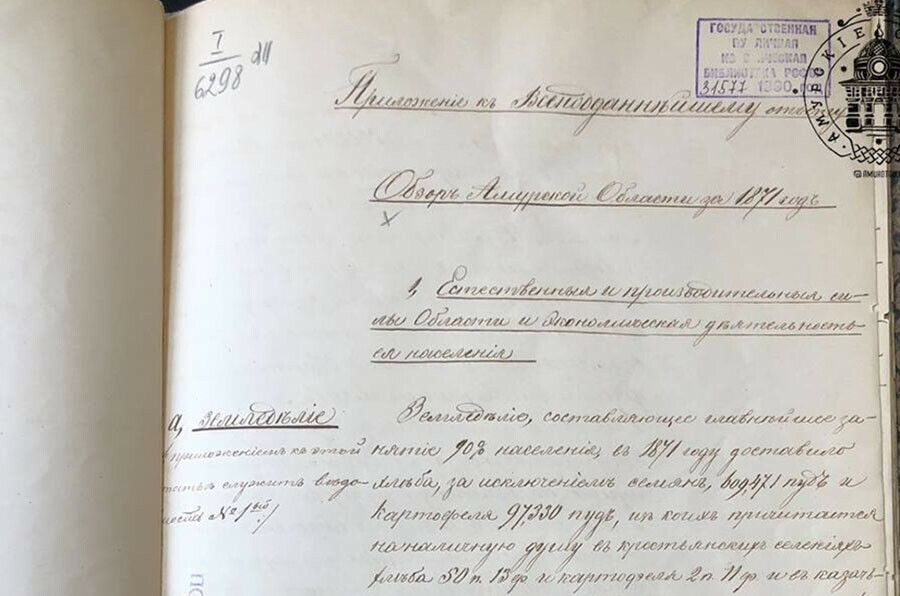 I
6298
ГОСУДАРСТВЕННАЯ
ПУ ЛИЧНАЯ
ИС ИЧЕСКАЯ
БИБЛИОТЕКА РСФСР
31577 1960 год
АМУРСКИЕ
Приложеніе къ Всеподданнѣйшему отчету
Обзоръ Амурской Области за 1871 годъ
1, Естественныя и производительныя си-
лы Области и экономическая дѣятельность
ея населенія
а, Земледѣліе
приложеніемъ къ этой
статьѣ служитъ вѣдо-
мость № 1ый
Земледѣліе, составляющее главнѣйшее за-
нятіе 90% населенія, въ 1871 году доставило
хлѣба, за исключеніемъ семянъ, пудъ и
картофеля 97,330 пудъ, изъ коихъ причитается
на наличную душу въ крестьянскихъ селеніяхъ
хлѣба 50 п. 13 ф. и картофеля 2 п. 11 ф. и въ казачь-